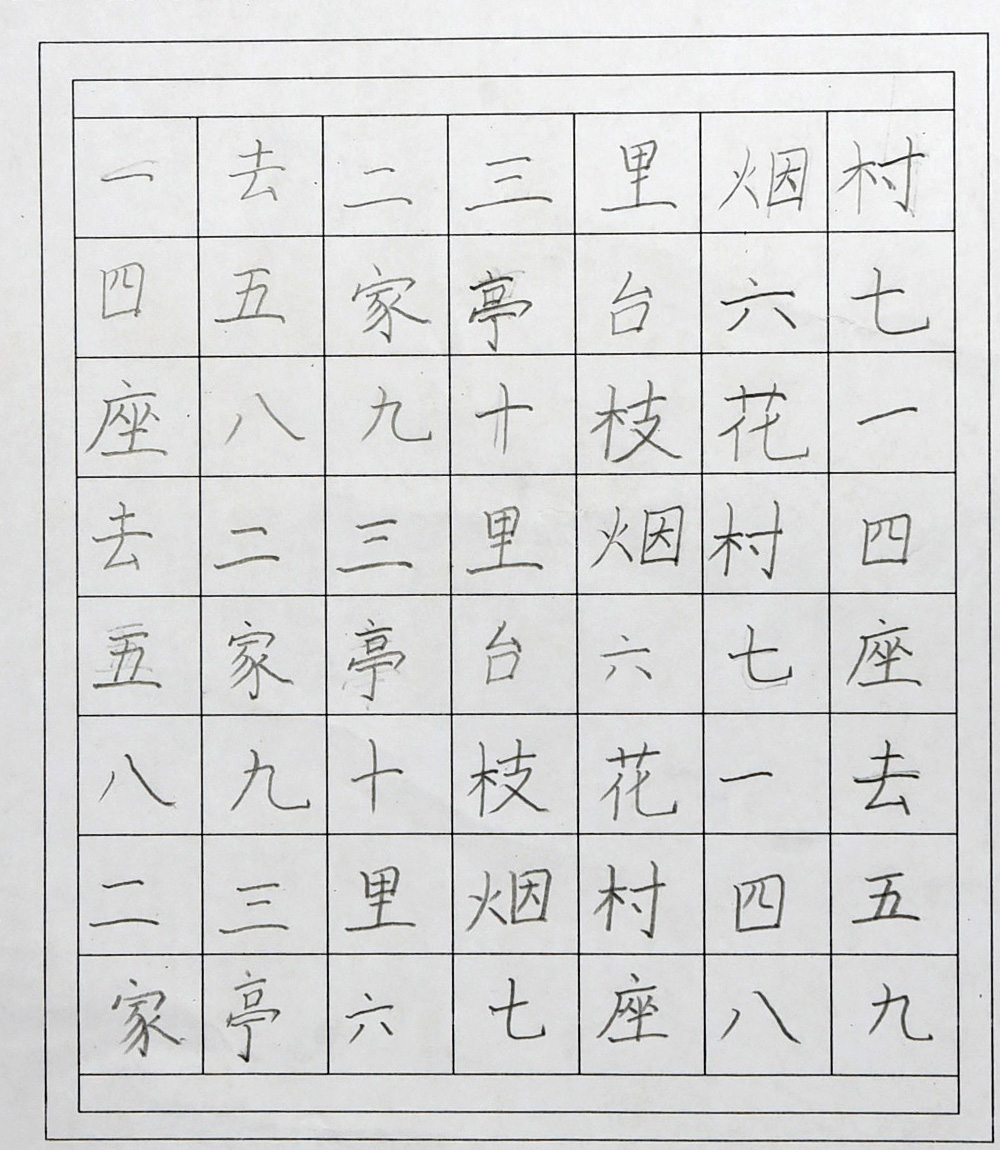 一去二三里烟村
四五家亭台六七
座八九十枝花一
去二三里烟村四
五家亭台六七座
八九十枝花一去
二三里烟村四五
家亭六七座八九